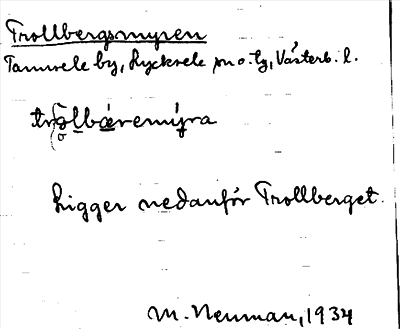 Trollbergsmyren
Tannsele by, Lycksele sn o. tg, Västerb. l.
trollbæremýra
Ligger nedanför Trollberget.
M. Neuman, 1934